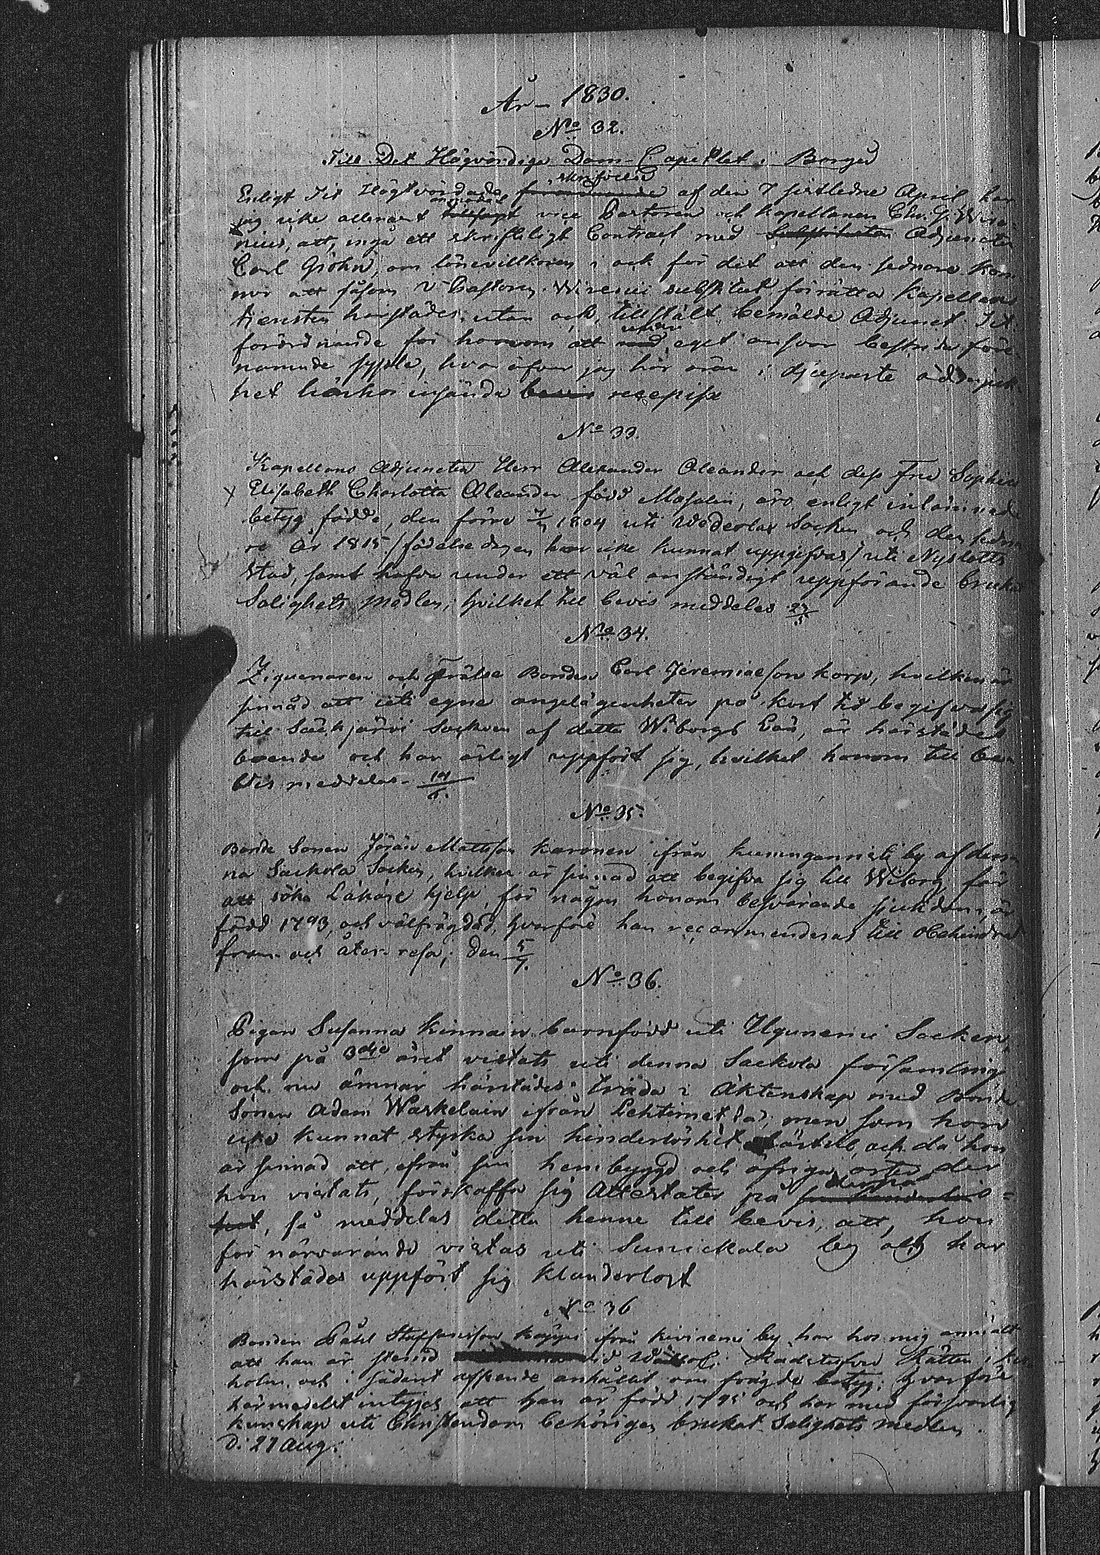 År 1830.
No 32.
Till Det Högvördige Dom-Capitlet i Borgå
skrifvelse
Enligt Dit Högtvördade af den 7 sistledne April har
jag icke allenast vice Pastoren och Kapellanen Chr. G. Wire-
nius, att, ingå ett skrifteligt Contract med Adjuncten
Carl Grohn, om lönevillkoren i och för det att den sednare kom-
mer att såsom V. Pastorn Wirenii substitut förrätta Kapellans
tjensten härstädes, utan ock, tillstält bemälde Adjunct Dit
under
förordnande för honom att eget ansvar bestrida före-
namnde syssla, hvaröfver jag hör äran i djupaste ödmjuk-
het härhos insända recepisse
No 33.
Kapellans Adjuncten Herr Alexander Aleander och dess Fru Sophia
x Elisabeth Charlotta Aleander född Masalin, äro, enligt inlämnade
betyg födde, den förre 1804 uti Wederlax Socken och den sedna-
re år 1815 /födelse dagen har icke kunnat uppgifvas/ uti Nyslotts
stad, samt hafva under ett väl anständigt uppförande brukat
Salighets medlen, hvilket till bevis meddelas 27/5
No 34.
Ziguenaren och Frälse Bonden Carl Jeremiaesson Korp, hvilken är
sinnad att uti egne angelägenheter på kort tid begifva sig
till Säkjärvi Socken af detta Wiborgs Län, är härstädes
boende och har ärligt uppfört sig, hvilket honom till be-
vis meddelas 14/6.
No 35.
Bonde Sonen Jöran Mattsson Karonen ifrån by af den-
na Sackola Socken, hvilken är sinnad att begifva sig till Wiborg för
att söka Läkare hjelp, för någon honom besvärande sjukdom, är
född 1793, och välfrägdad, hvarföre han recommenderas till obehindrad
fram- och åter-resa; den 5/7.
No 36.
Pigan Susanna Kinnain barnfödd uti Ilquenemi Socken,
som på 3dje året vistats uti denna Sackola församling
och nu ämnar härstädes träda i Äktenskap med Bonde
Sonen Adam Waskelain ifrån, men som hon
icke kunnat styrka sin hinderlöshet härtill, och då hon
är sinnad att, ifrån sin hembyggd och öfriga orter der
denna
hon vistats, förskaffa sig Attestater på
så meddelas detta henne till bevis, att, hon
för närvarande vistas uti Sunickala by och har
härstädes uppfört sig klanderlöst
No 36
Bonden Påhl Staffansson Käppi ifrån Kiviniemi by har hos mig anmält
att han är stemd Rådstufvu Rätten i Kex-
holm och i sådant afseende anhållit om frägde betyg; hvarföre
härmedelst intygas att han är född 1795 och har med försvarlig
kunskap uti Christendom behörigen brukat Salighets medlen.
d. 27 Aug.